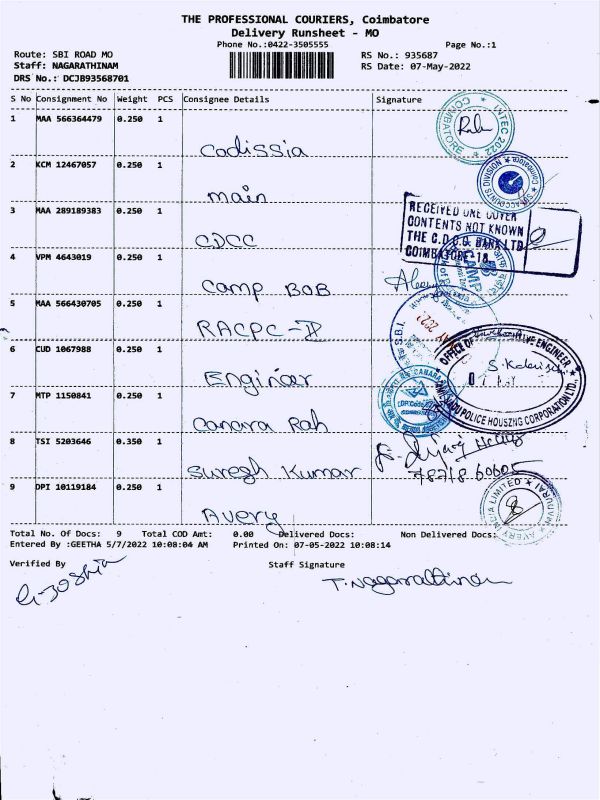 THE PROFESSIONAL COURIERS, Coimbatore
Delivery Runsheet - MO
Phone No.:0422-3505555 Page No.:1
Route: SBI ROAD MO RS No.: 935687
Staff: NAGARATHINAM RS Date: 07-May-2022
DRS No.: DCJB93568701
S No Consignment No Weight PCS Consignee Details Signature
1 MAA 566364479 0.250 1
Codissia
INTEC 2022 COIMBATORE
2 KCM 12467057 0.250 1
main
ACCOUNTS DIVISION
3 MAA 289189383 0.250 1
CDCC
RECEIVED ONE COVER
CONTENTS NOT KNOWN
THE C.D.C.C. BANK LTD
COIMBATORE-18
4 VPM 4643019 0.250 1
Camp BOB
CAMP
5 MAA 566430705 0.250 1
RACPC-II
S.B.I.
6 CUD 1067988 0.250 1
Enginar
OFFICE OF EXECUTIVE ENGINEER
TAMILNADU POLICE HOUSING CORPORATION LTD.,
7 MTP 1150841 0.250 1
Canara Rah
CANARA
8 TSI 5203646 0.350 1
Suresh Kumar
78718 60605
9 DPI 10119184 0.250 1
Avery
AVERY INDIA LIMITED MADURAI
Total No. Of Docs: 9 Total COD Amt: 0.00 Delivered Docs: Non Delivered Docs:
Entered By :GEETHA 5/7/2022 10:08:04 AM Printed On: 07-05-2022 10:08:14
Verified By Staff Signature
T. Nagarathinam